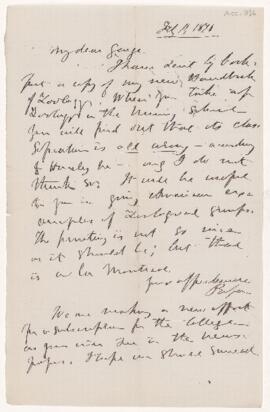 Acc. 976
Feb 19, 1876
My dear George,
I have sent by book
post a copy of my new Handbook
of Zoology. When you take up
Zoology in the School
you will find out that its class
ification is all wrong – according
to Huxley &c – and I do not
think so. It will be useful
to you in giving American exa
mples of Zoological groups.
The printing is not so nice
as it should be; but that
is a la Montreal.
your affectionate
Papa
We are making a new effort
for a subscription for the College
as you may see in the news
papers. I hope we shall succeed